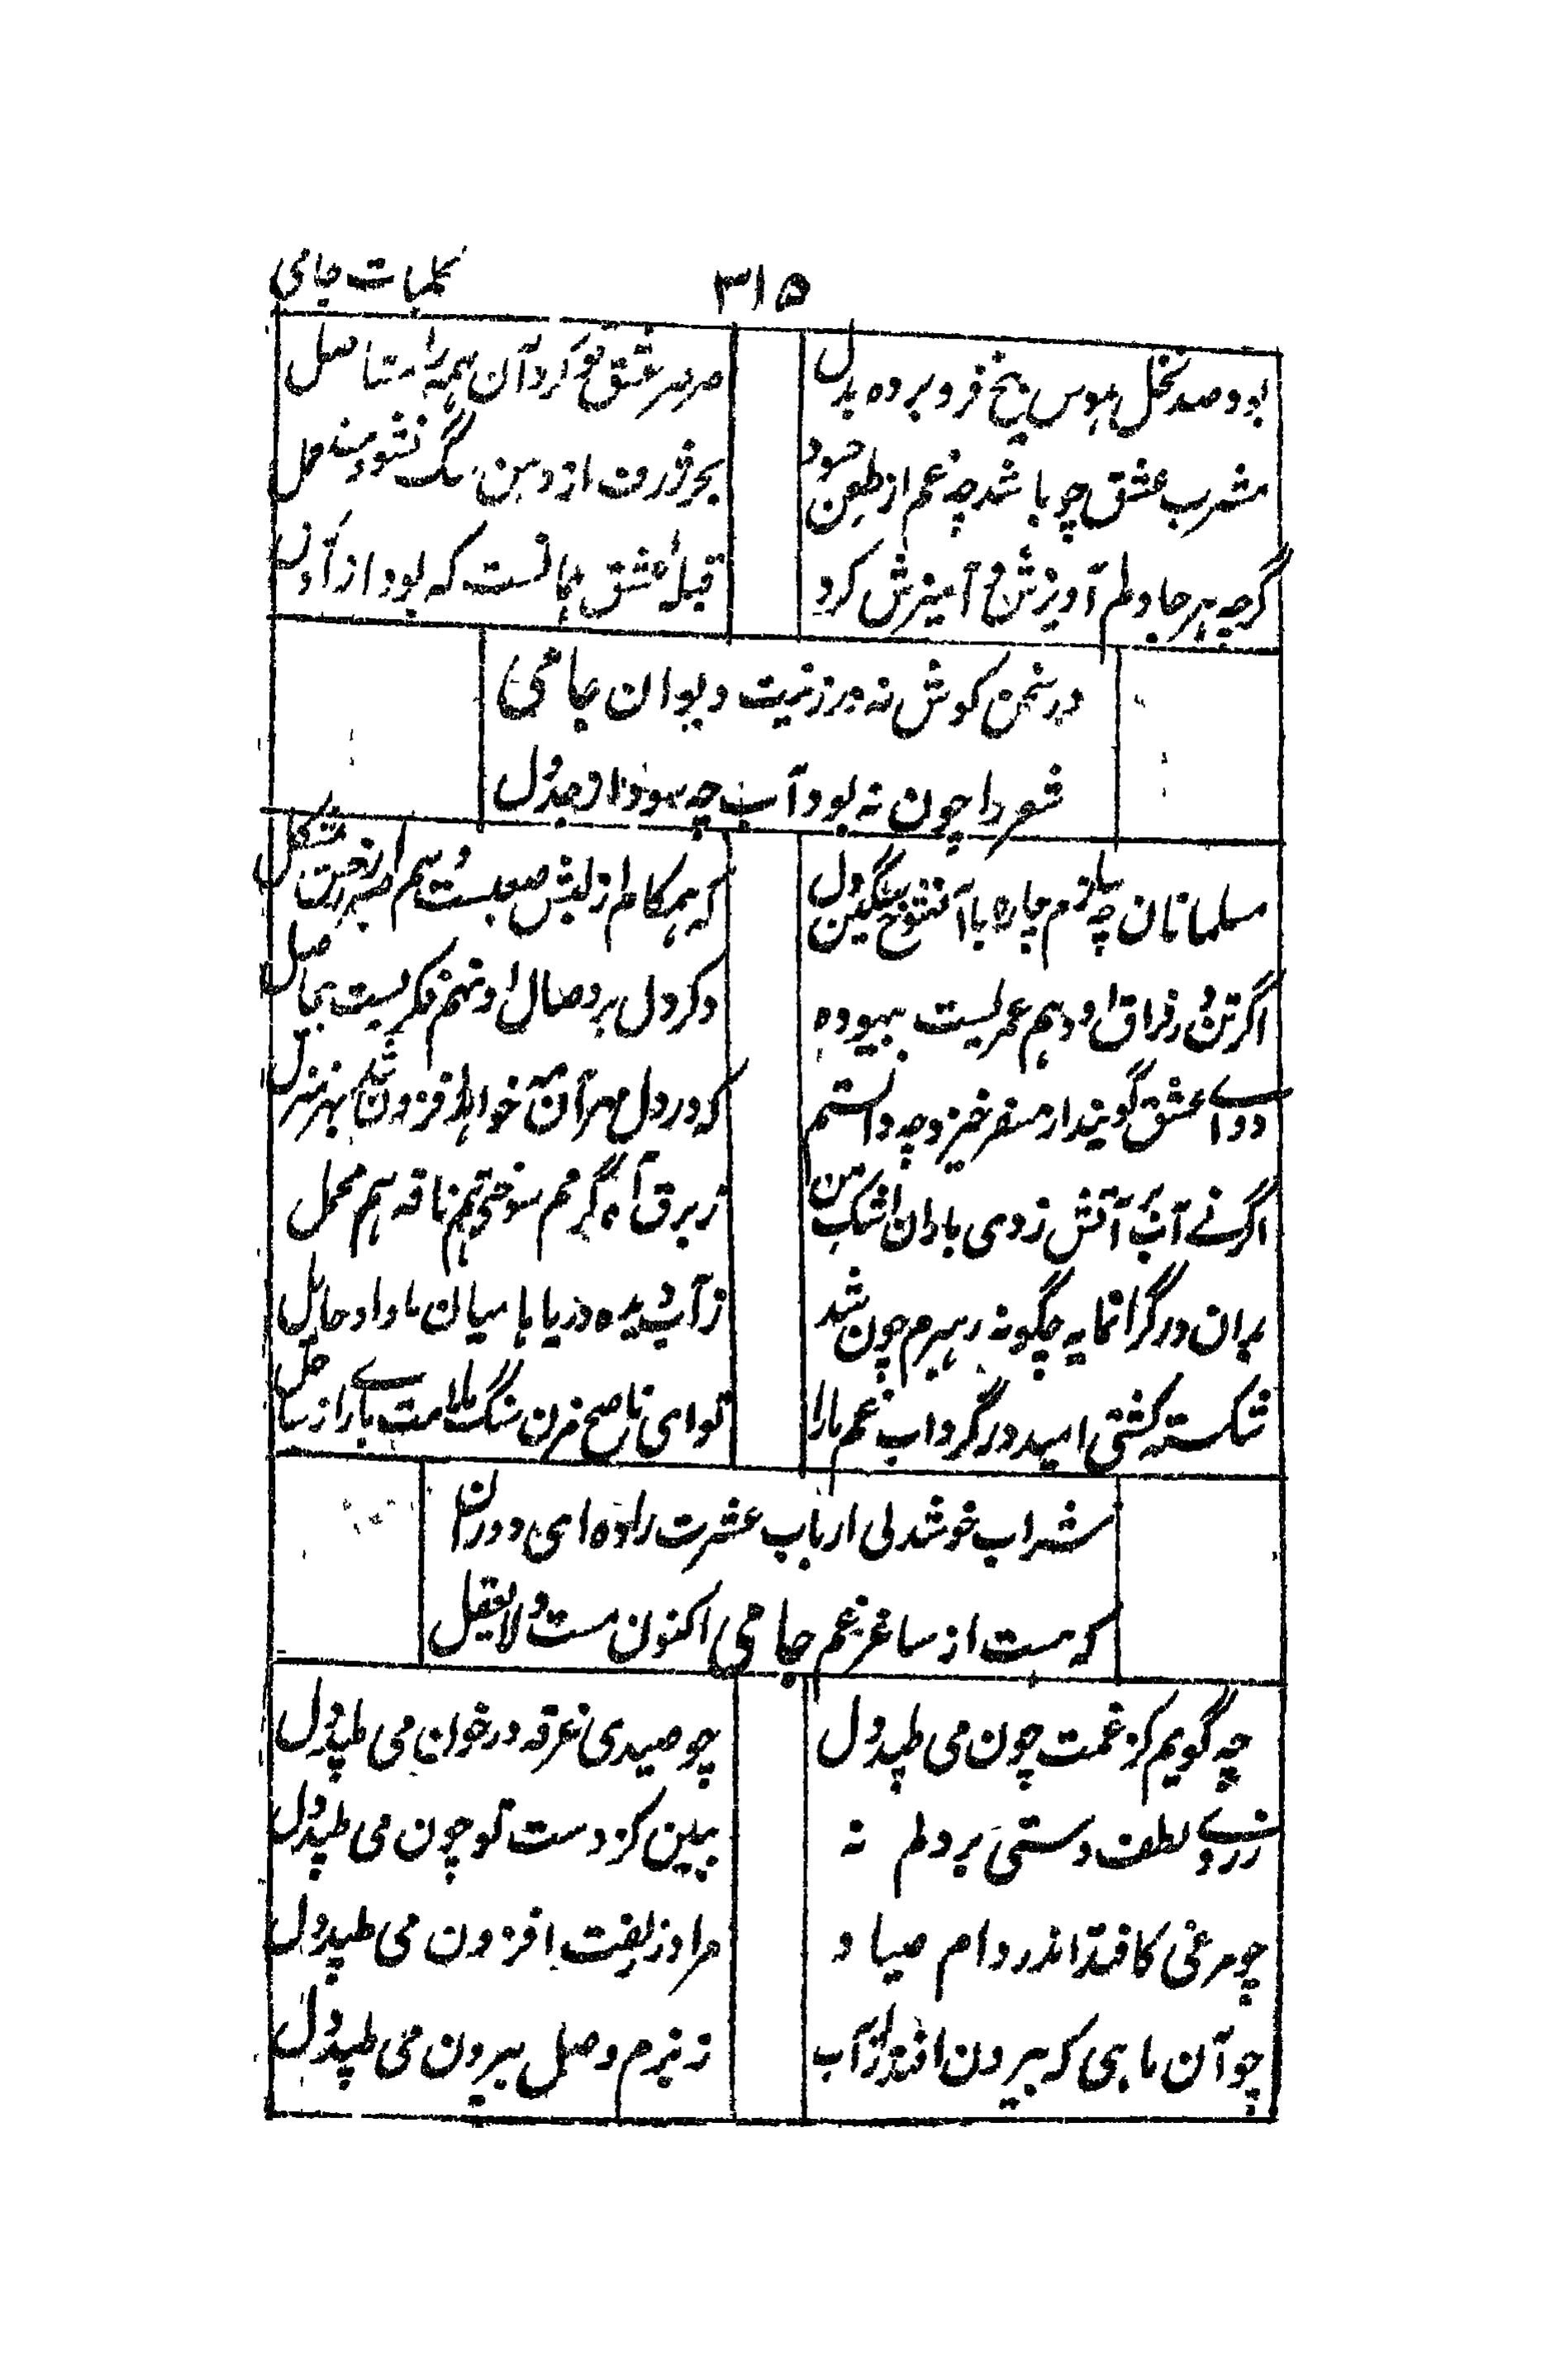 کلیات جامی
۳۱۵
بود صد نخل هوس بیخ فرو برده بدل
صرصر عشق تو کرد آن همه را مستاصل
مشرب عشق چو باشد چه غم از طعن حسود
بحر ژرف از دهن سگ نشود مستعمل
گرچه هر جا دلم آویزش و آمیزش کرد
قبلهٔ عشق همانست که بود از اول
در سخن کوش نه در زینت دیوان جامی
شعر را چون نه بود آب چه سود از جدول
مسلمانان چه سازم چاره با آنشوخ سنگین دل
که هم کام از لبش صعبست و هم صبر از رخش مشکل
اگر تن در فراق او دهم عمریست بیهوده
وگر دل بر وصال او نهم فکریست بیحاصل
دوای عشق گویند از سفر خیزد چه دانستم
که در دل مهر آن مه خواهد افزون شد بهر منزل
اگر نے آب بر آتش زدی باران اشک من
ز برق آه گرمم سوختی هم ناقه هم محمل
بدان در گرانمایه چگونه رهبرم چون شد
ز آب دیده دریاها میان ما و او حایل
شکسته کشتی امید در گرداب غم ما را
تو ای ناصح مزن سنگ ملامت بارے از ساحل
شراب خوشدلی ارباب عشرت را ده ای دوران
که هست از ساغر غم جامی اکنون مست و لایعقل
چه گویم کز غمت چون می طپد دل
چو صیدی غرقه در خوان می طپد دل
ز روے لطف دستی بر دلم نه
ببین کز دست تو چون می طپد دل
چو مرغی کافتد اندر دام صیاد
مرا در زلفت افزون می طپد دل
چو آن ماهی که بیرون افتد از آب
ز بزم وصل بیرون می طپد دل